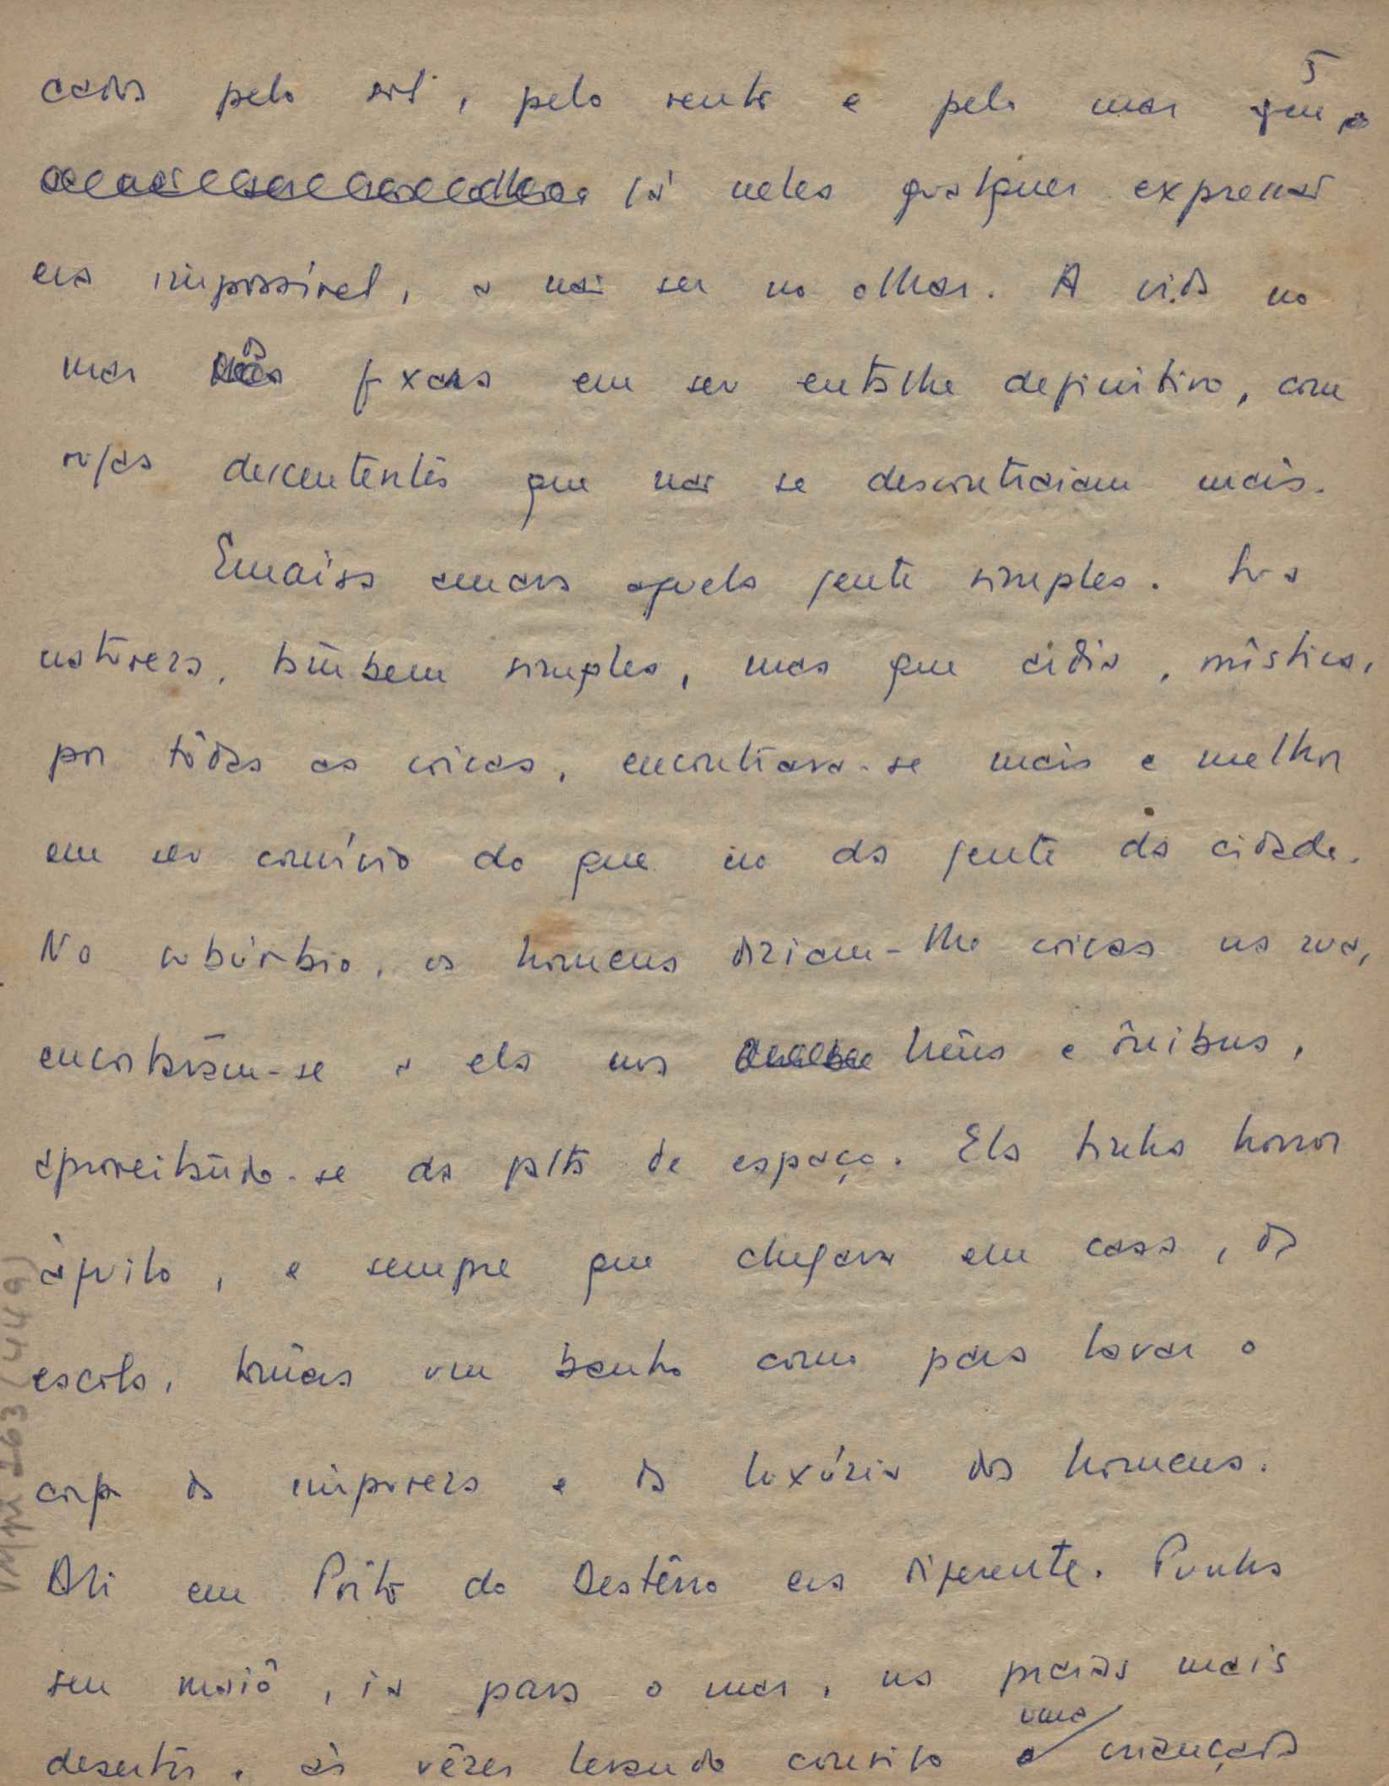 5
cados pelo sol, pelo vento e pelo mar que
ler neles qualquer expressão
era impossível, a não ser no olhar. A vida no
mar os fixara em seu entalhe definitivo, com
rugas descontentes que não se descontraiam mais.
Emaísa amava aquela gente simples. Sua
natureza, também simples, mas que ardia, mística,
por tôdas as coisas, encontrava-se mais e melhor
em seu convívio do que no da gente da cidade.
No subúrbio, os homens diziam-lhe coisas na rua,
encostavam-se a ela nos trens e ônibus,
aproveitando-se da falta de espaço. Ela tinha horror
àquilo, e sempre que chegava em casa, da
escola, tomava um banho como para lavar o
corpo da impureza e da luxúria dos homens.
Ali em Pôrto do Destêrro era diferente. Punha
seu maiô, ia para o mar, nas praias mais
uma
desertas, às vêzes levando consigo a criançada
VMpi 263 (449)